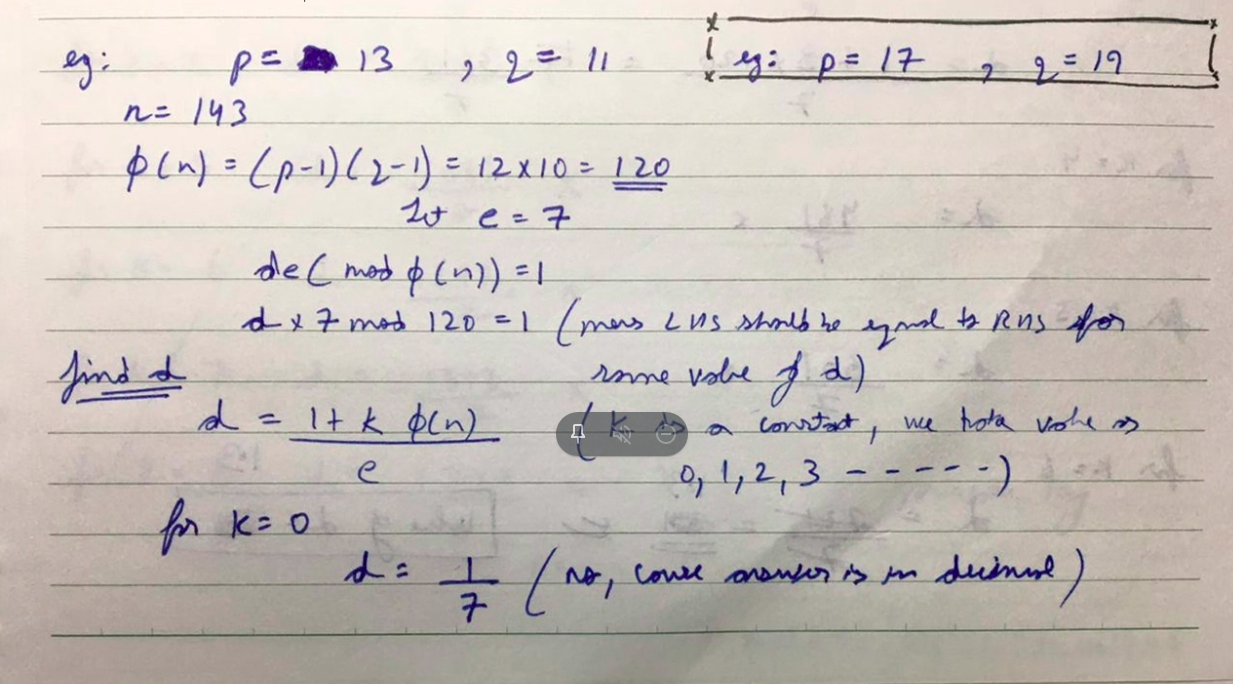 eg: p = 13 , q = 11
eg: p = 17 , q = 19
n = 143
ϕ(n) = (p-1)(q-1) = 12 x 10 = 120
Let e = 7
de (mod ϕ(n)) = 1
d x 7 mod 120 = 1 (means LHS should be equal to RHS for
find d some value of d)
d = 1 + k ϕ(n) / e (k is a constant, we take value as
0, 1, 2, 3 ------)
for k = 0
d = 1/7 (no, cause answer is in decimal)